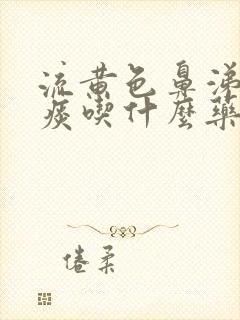 流黄色鼻涕
痰喫什麼藥
倦柔